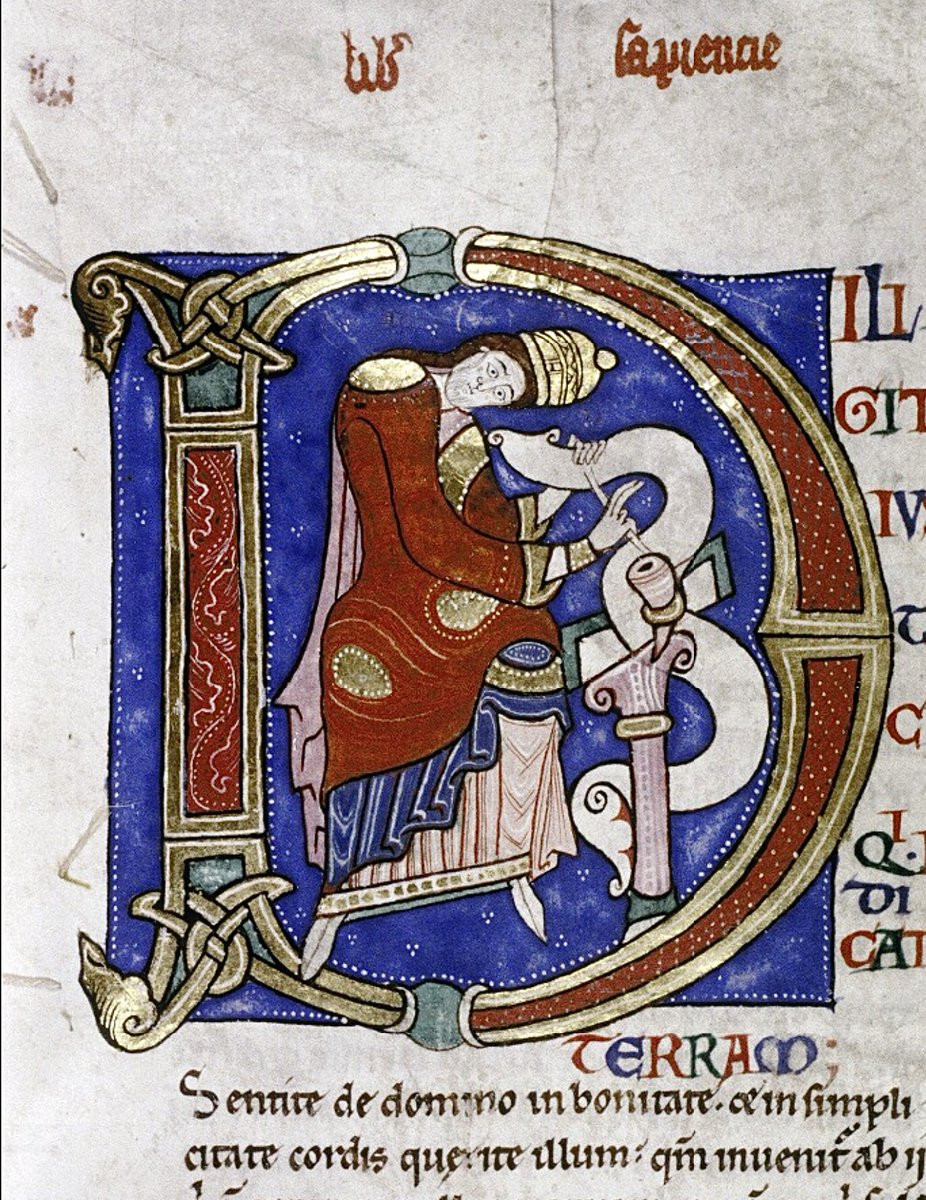 lib sapiencie
D ILI
GIT
IV
T
C
Q I
DI
CAT
TERRAM;
Sentite de domino in bonitate. & in simpli
citate cordis querite illum: qm̄ inuenit ab